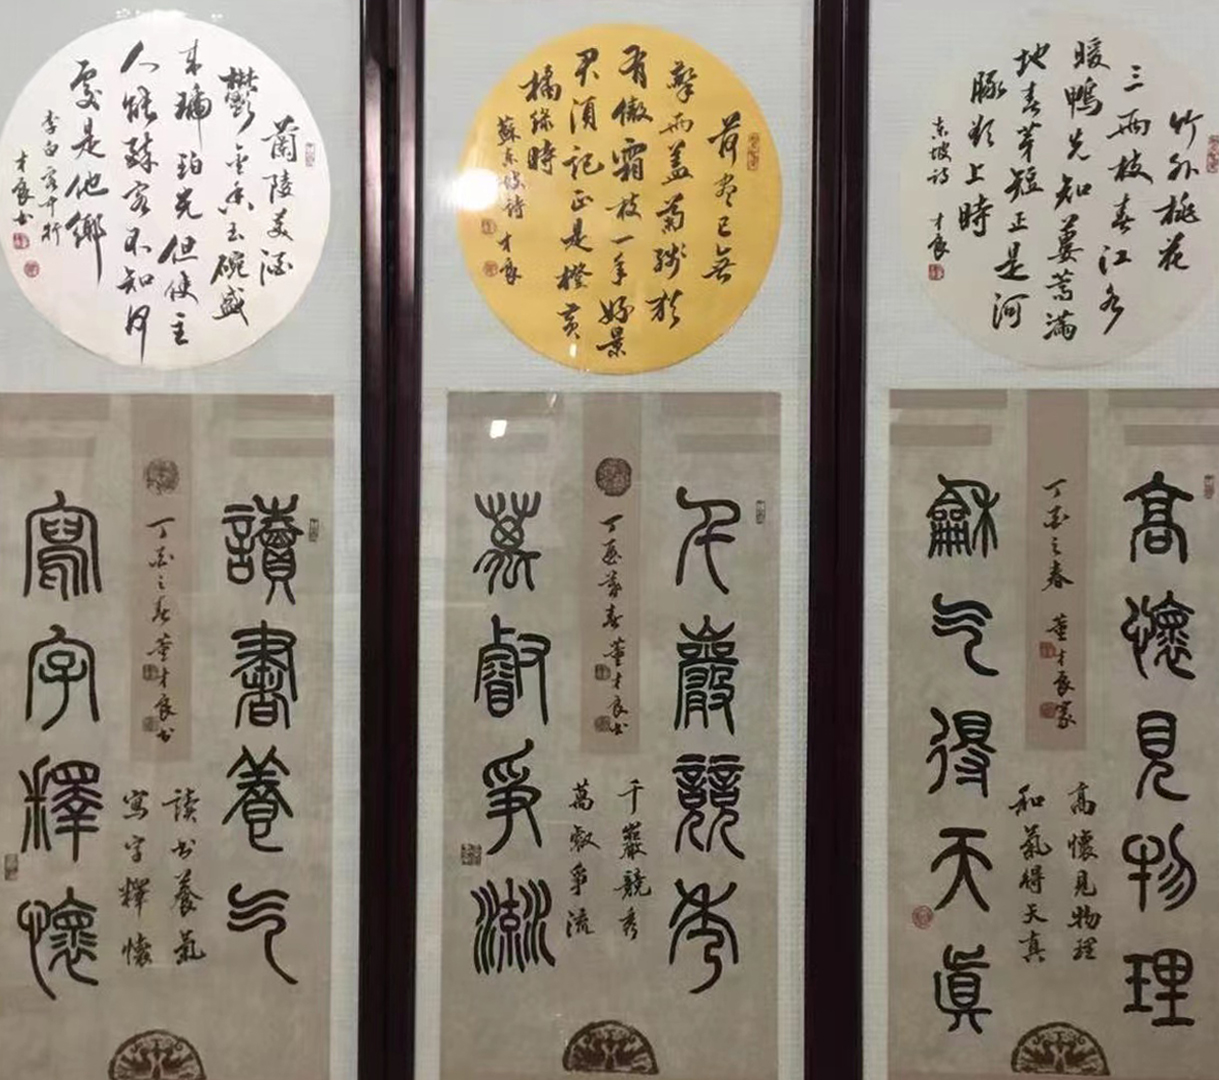 竹外桃花
三兩枝春江水
暖鴨先知蔞蒿滿
地春芽短正是河
豚欲上時
東坡詩
才良
荷盡已無
擎雨盖菊殘猶
有傲霜枝一年好景
君須記正是橙黃
橘綠時
蘇東坡詩
才良
蘭陵美酒
鬱金香玉碗盛
來琥珀光但使主
人能醉客不知何
處是他鄉
李白客中行
才良书
高懷見物理
龢气得天眞
丁酉之春
董才良篆
高懷見物理
和氣得天真
千巖競秀
萬叡爭流
丁酉暮春
董才良书
千巖競秀
萬叡爭流
讀書養气
寫字釋懷
丁酉之春
董才良书
读书養氣
寫字釋懷